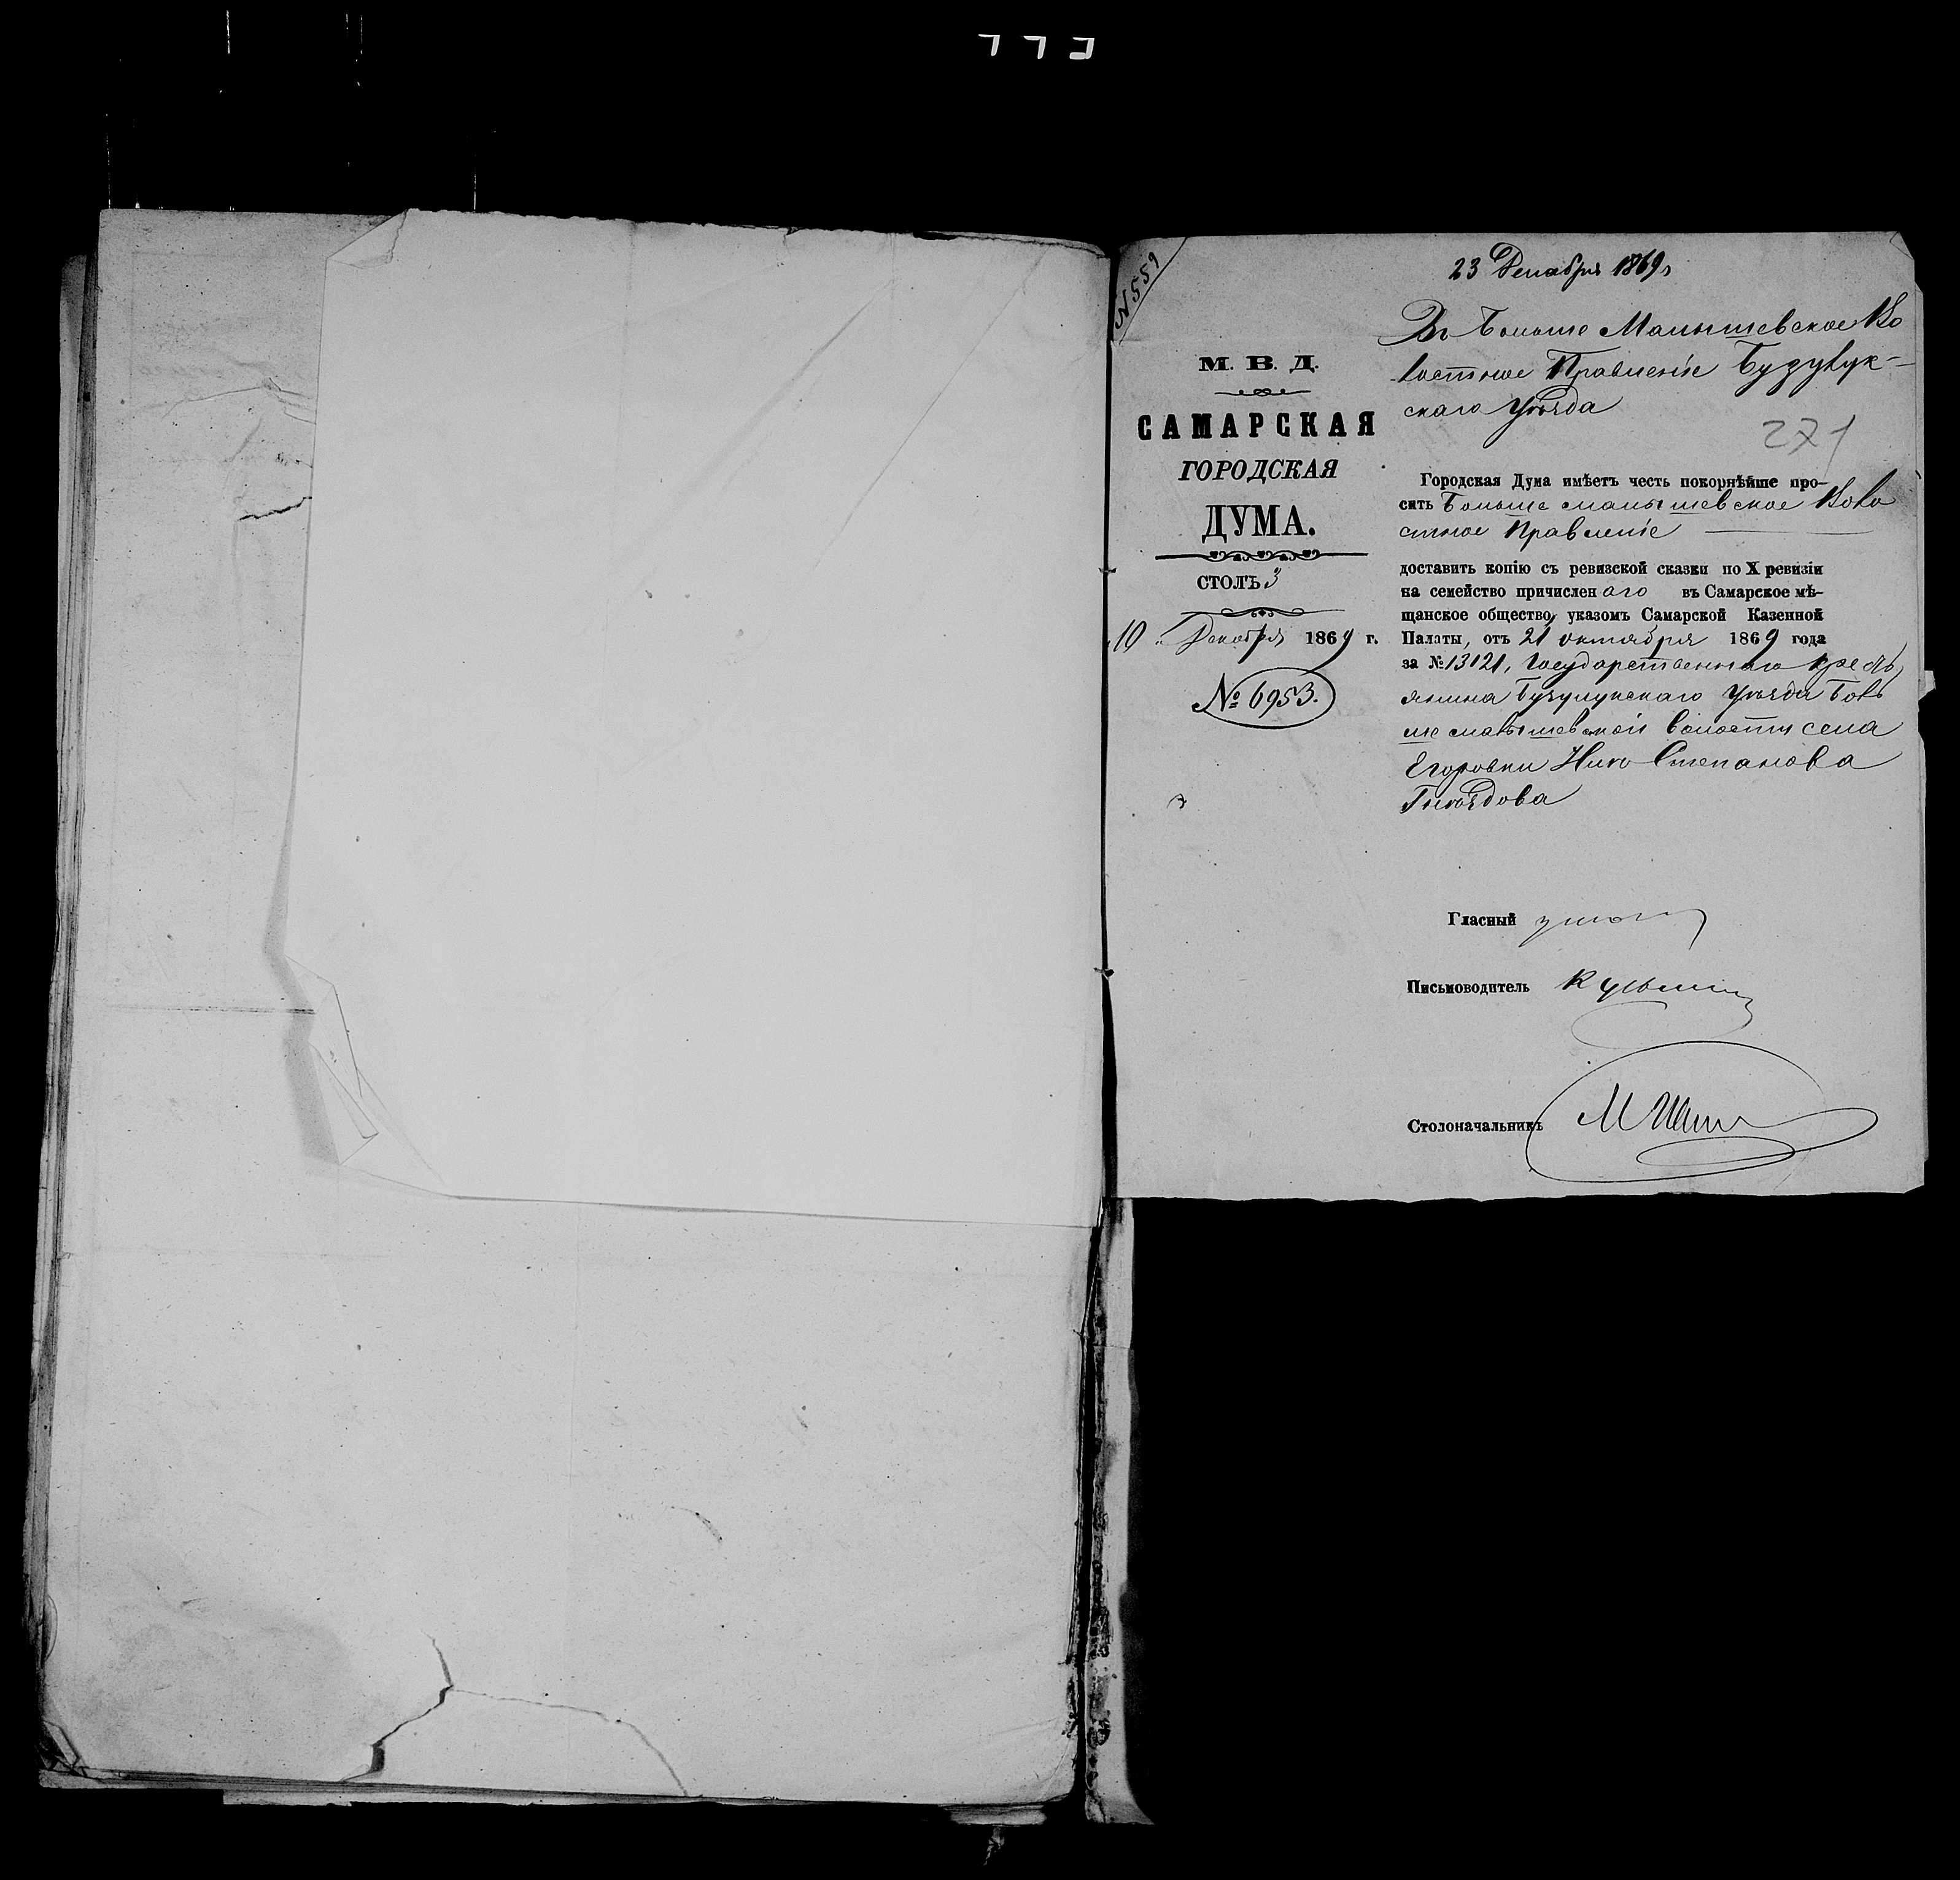 № 559
М. В. Д.
САМАРСКАЯ
ГОРОДСКАЯ
ДУМА.
СТОЛЪ 3
10 Декабря 1869 г.
№ 6953.
23 Декабря 1869 г
Въ Больше Малышевское Во
лостное Правленіе Бузулук-
скаго Уѣзда
271
Городская Дума имѣетъ честь покорнѣйше про-
сить Больше малышевское Воло
стное Правленіе
доставить копію съ ревизской сказки по X ревизіи
на семейство причисленаго въ Самарское мѣ-
щанское общество, указомъ Самарской Казенной
Палаты, отъ 21 октября 1869 года
за № 13121, Государственнаго кресть
янина Бузулукскаго Уѣзда Боль
ше малышевской волости села
Егоровки Степанова
Гнѣздова
Гласный
Письмоводитель
Столоначальникъ